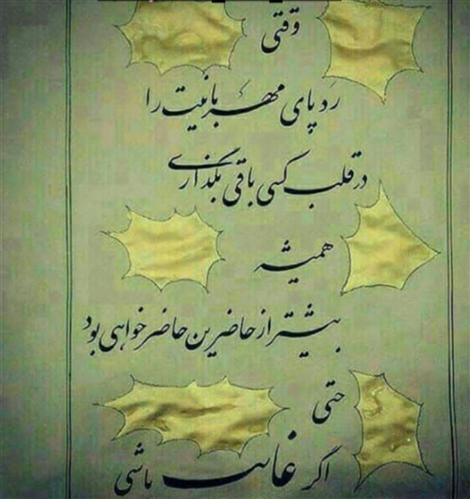 وقتی
رد پای مهربانیت را
در قلب کسی باقی بگذاری
همیشه
بیشتر از حاضرین حاضر خواهی بود
حتی
اگر غایب باشی